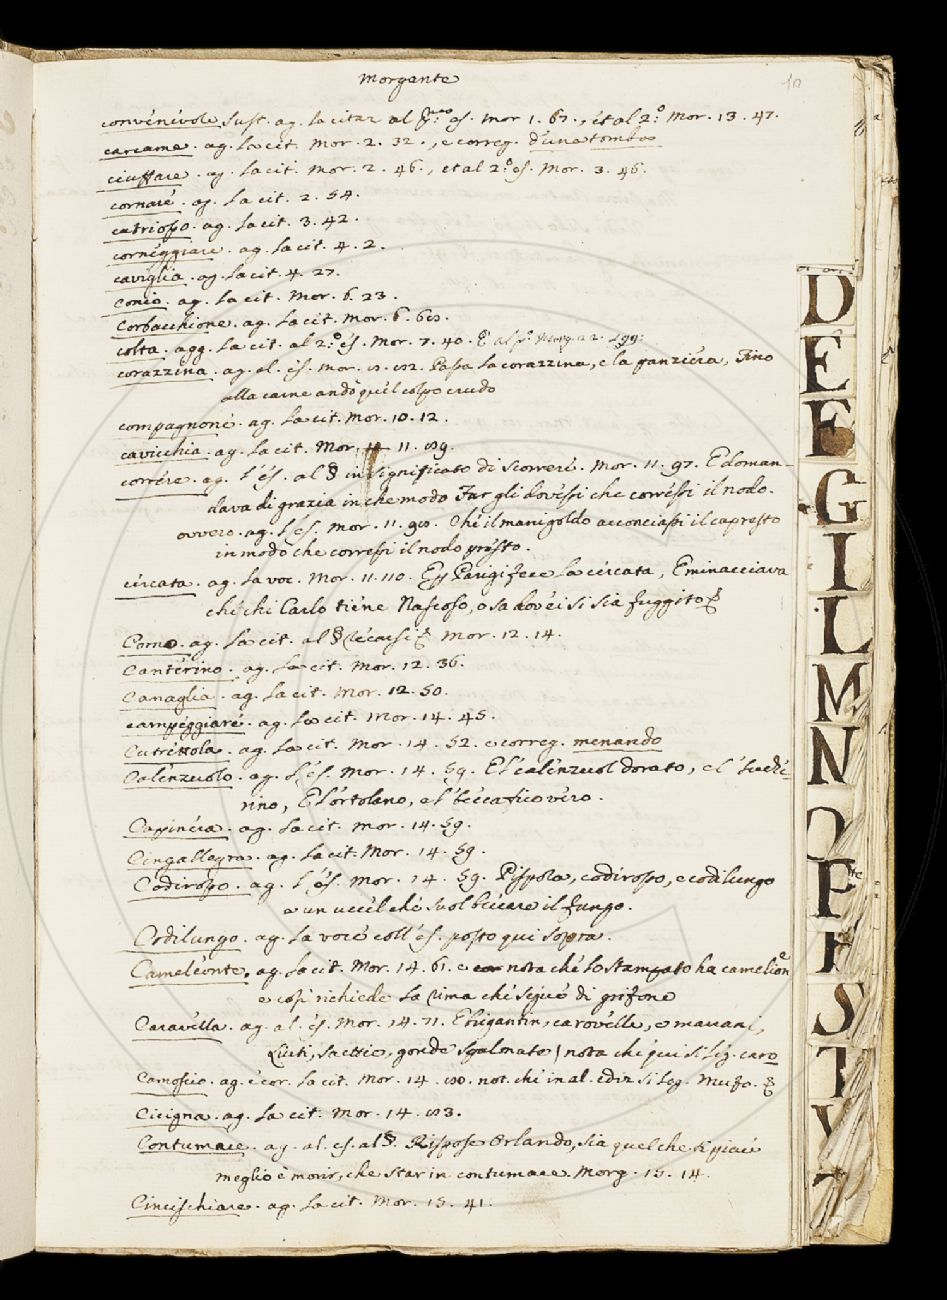 Morgante
10
convenevole sust. ag. la citaz al p.mo es. Mor 1. 67., et al 2.º Mor. 13. 47.
carcame. ag. la cit. Mor. 2. 32., e correg. d'una tomba
ciuffare. ag. la cit. Mor. 2. 46., et al 2.º es. Mor. 3. 46.
cornare. ag. la cit. 2. 54.
catriosso. ag. la cit. 3. 42.
corneggiare. ag. la cit. 4. 2.
caviglia. ag. la cit. 4. 27.
Conio. ag. la cit. Mor. 6. 23.
Corbacchione. ag. la cit. Mor. 6.
colta. agg. la cit. al 2.º es. Mor. 7. 40. E al p.º Morg. 22.
corazzina. ag. al. es. Mor. Passa la corazzina, e la panziera, Fino
alla carne andò quel colpo crudo
compagnone. ag. la cit. Mor. 10. 12.
cavicchia. ag. la cit. Mor. 11.
correre. ag. l'es. al § in significato di scorrere. Mor. 11. 97. E doman-
dava di grazia in che modo Far gli dovessi che corressi il nodo.
ovvero. ag. l'es. Mor. 11. Che il manigoldo acconciassi il capresto
in modo che corressi il nodo presto.
cercata. ag. la voc. Mor. 11. 110. E in Parigi fece la cercata, E minacciava
che chi Carlo tiene Nascoso, o sa dov'ei si sia fuggito &
Como. ag. la cit. al § Mor. 12. 14.
Canterino. ag. la cit. Mor. 12. 36.
Canaglia. ag. la cit. Mor. 12. 50.
campeggiare. ag. la cit. Mor. 14. 45.
Cutrettola. ag. la cit. Mor. 14. 52. e correg. menando
Calenzuolo. ag. l'es. Mor. 14. 59. E 'l calenzuol dorato, e 'l lucheri-
rino, E l'ortolano, e 'l beccafico vero.
Capinera. ag. la cit. Mor. 14. 59.
Cingallegra. ag. la cit. Mor. 14. 59.
Codirosso. ag. l'es. Mor. 14. 59. Pispola, codirosso, e codilungo
e un uccel che suol beccare il fungo.
Codilungo. ag. la voce coll'es. posto qui sopra.
Cameleonte. ag. la cit. Mor. 14. 61. e nota che lo stampato ha camelione
e così richiede la rima che segue di grifone
Caravella. ag. al. es. Mor. 14. 71. E brigantin, carovelle, e marrani,
Liuti, saettie, gonde sgalmato / nota che qui si leg. caro
Camoscio. ag. e cor. la cit. Mor. 14. not. che in al. ediz si leg. Mufo. &
Cicigna. ag. la cit. Mor. 14.
Contumace. ag. al. es. al §. Rispose Orlando, sia quel che ti piace
meglio è morir, che star in contumace. Morg. 15. 14.
Cincischiare. ag. la cit. Mor. 15. 41.
D
E
F
G
I
L
M
N
O
P
R
S
T
V
Z